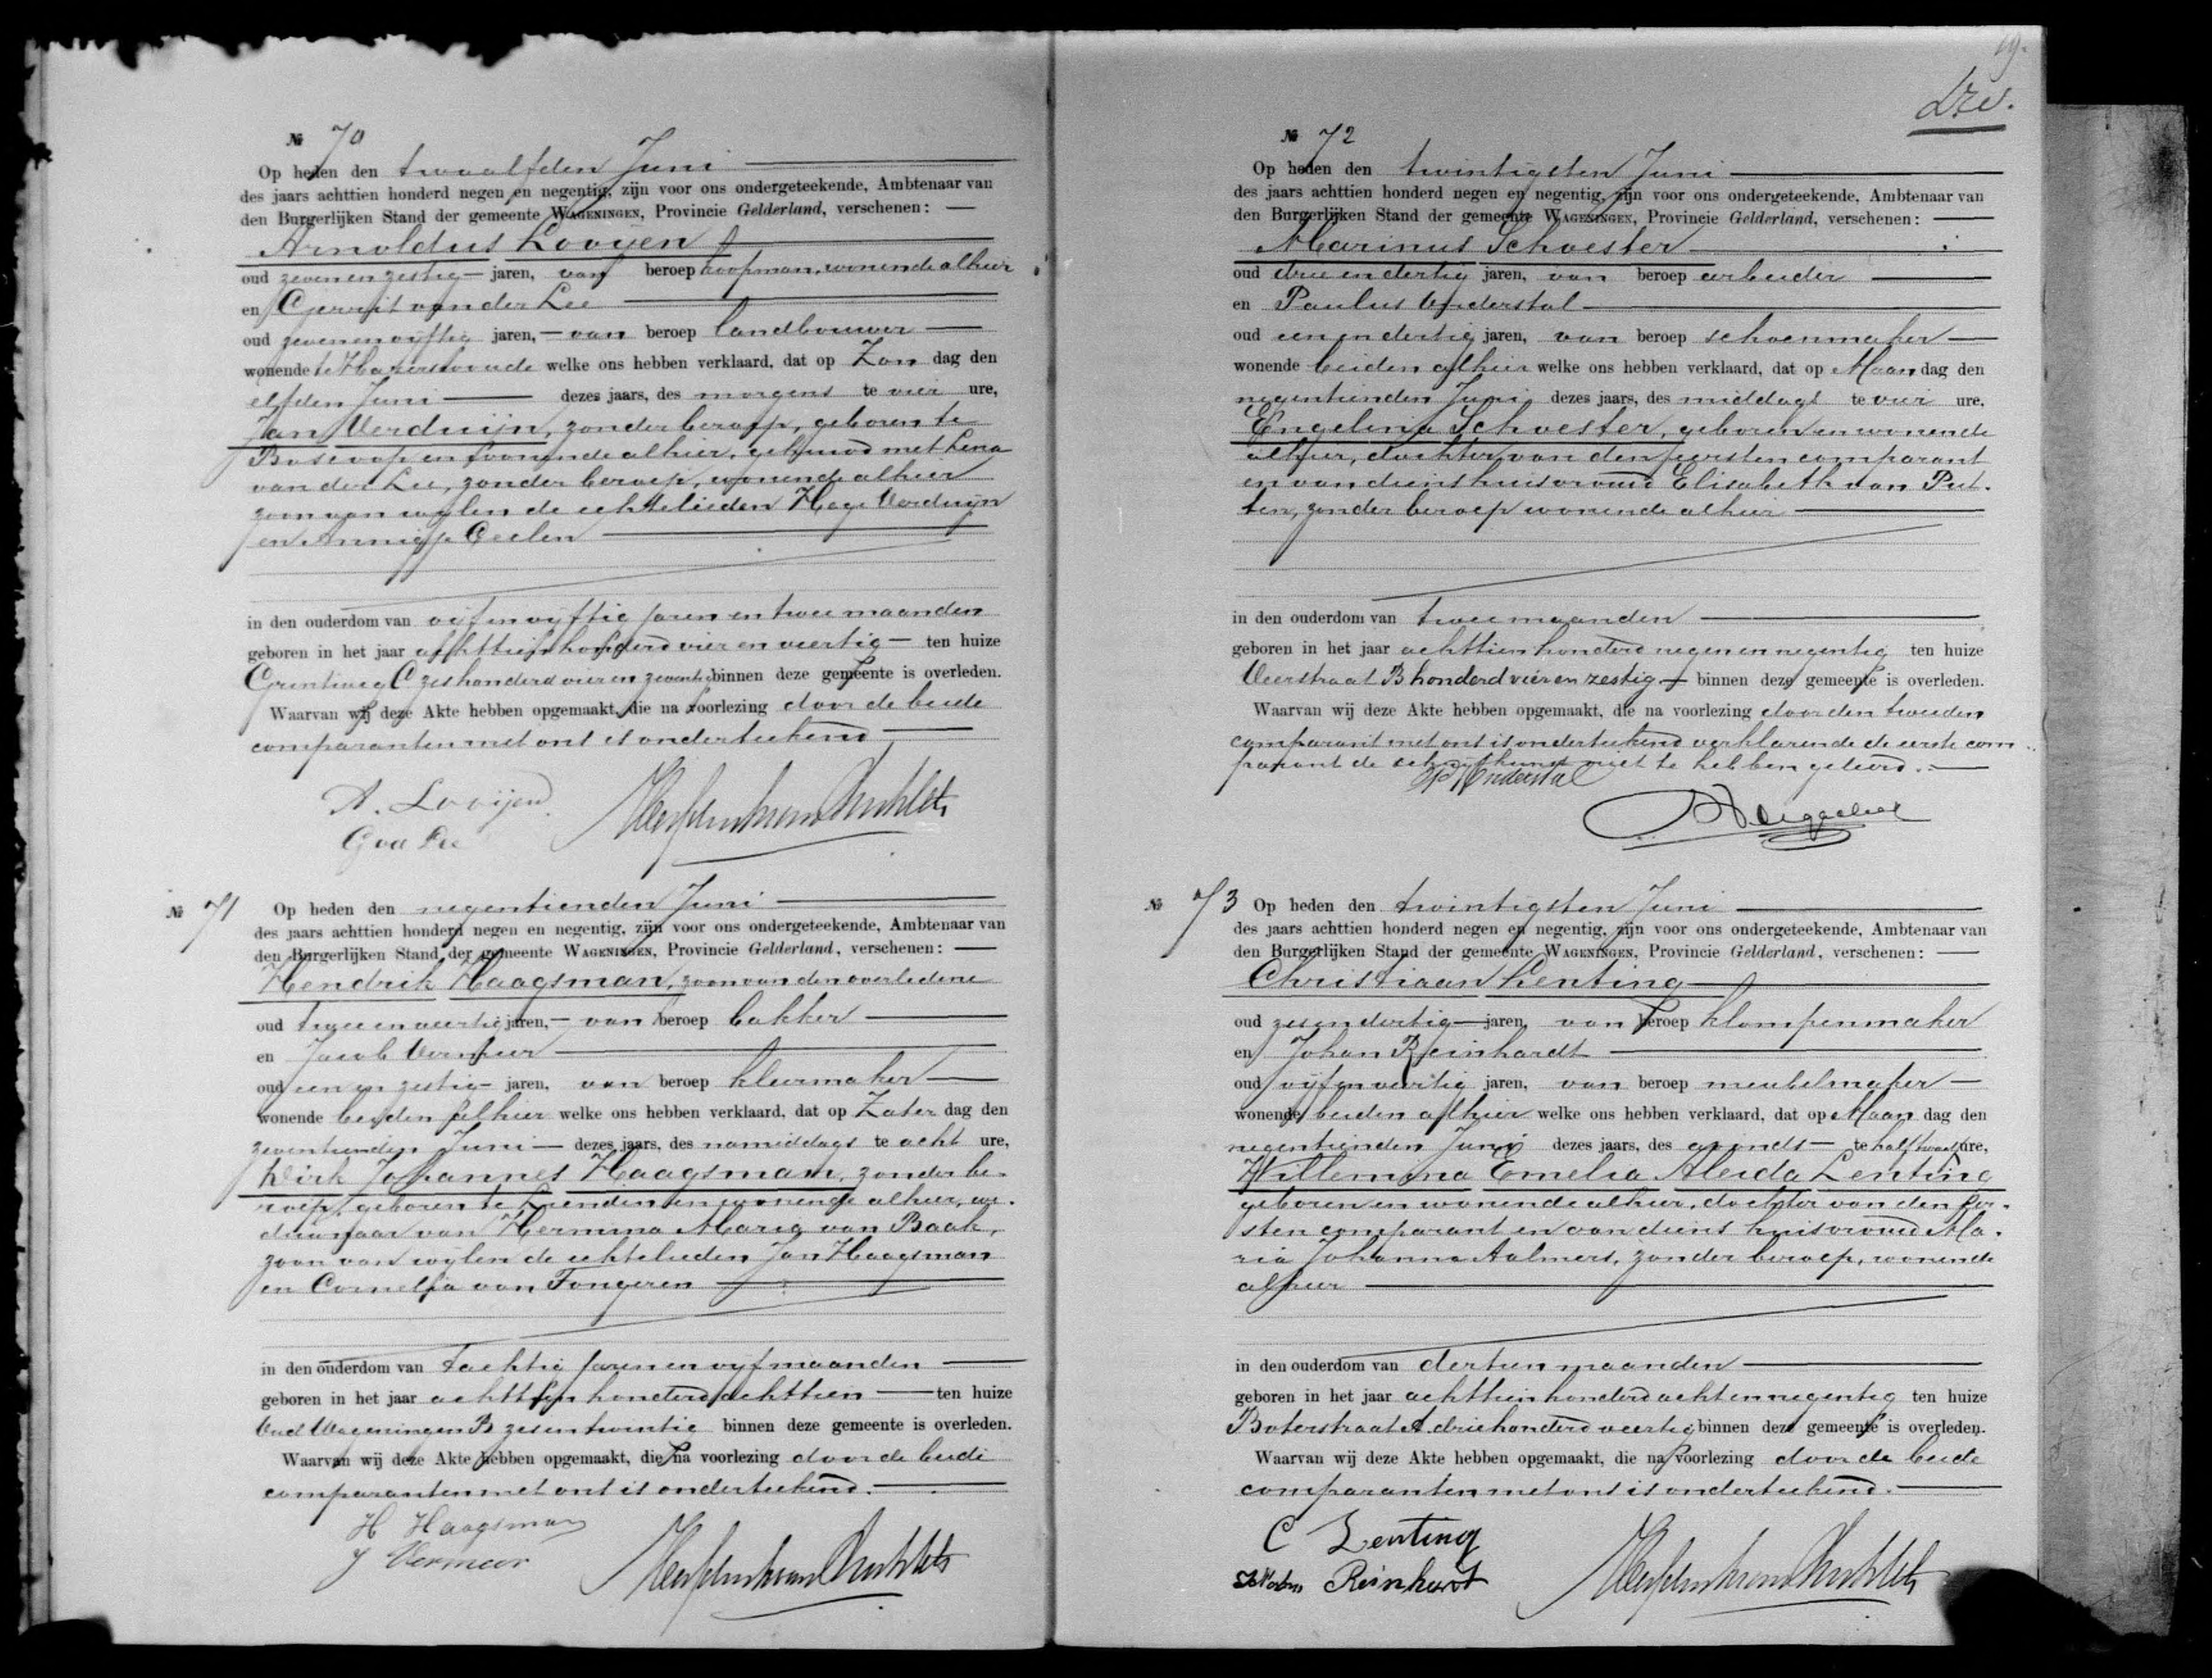 № 70
Op heden den twaalfden Juni
des jaars achttien honderd negen en negentig, zijn voor ons ondergeteekende, Ambtenaar van
den Burgerlijken Stand der gemeente WAGENINGEN, Provincie Gelderland, verschenen:
Arnoldus Looijen
oud zevenenzestig jaren, van beroep koopman, wonende alhier
en Gerrit van der Lee
oud zevenenvijftig jaren, van beroep landbouwer
wonende te Hazerswoude welke ons hebben verklaard, dat op Zon dag den
elfden Juni dezes jaars, des morgens te vier ure,
Jan Verduijn, zonder beroep, geboren te
Boscoop en wonende alhier, gehuwd met Lena
van der Lee, zonder beroep, wonende alhier
zoon van wijlen de echtelieden Hage Verduijn
en Annigje Ceelen
in den ouderdom van vijfenvijftig jaren en twee maanden
geboren in het jaar achttienhonderd vier en veertig ten huize
Grintweg C zeshonderd vier en zeventig binnen deze gemeente is overleden.
Waarvan wij deze Akte hebben opgemaakt, die na voorlezing door de beide
comparanten met ons is onderteekend
A. Looijen.
G vd Lee
№ 71 Op heden den negentienden Juni
des jaars achttien honderd negen en negentig, zijn voor ons ondergeteekende, Ambtenaar van
den Burgerlijken Stand der gemeente WAGENINGEN, Provincie Gelderland, verschenen:
Hendrik Haagsman, zoon van den overledene
oud tweeenveertig jaren, van beroep bakker
en Jacob Vermeer
oud een en zestig jaren, van beroep kleermaker
wonende beiden alhier welke ons hebben verklaard, dat op Zater dag den
zeventienden Juni dezes jaars, des namiddags te acht ure,
Dirk Johannes Haagsman, zonder be-
roep, geboren te Lienden en wonende alhier, we-
duwnaar van Hermina Maria van Baak,
zoon van wijlen de echtelieden Jan Haagsman
en Cornelia van Tongeren
in den ouderdom van tachtig jaren en vijf maanden
geboren in het jaar achttienhonderd achttien ten huize
Oud Wageningen B zesentwintig binnen deze gemeente is overleden.
Waarvan wij deze Akte hebben opgemaakt, die na voorlezing door de beide
comparanten met ons is onderteekend.
H Haagsman
J Vermeer
19.
№ 72
Op heden den twintigsten Juni
des jaars achttien honderd negen en negentig, zijn voor ons ondergeteekende, Ambtenaar van
den Burgerlijken Stand der gemeente WAGENINGEN, Provincie Gelderland, verschenen:
Marinus Schoester
oud drieendertig jaren, van beroep arbeider
en Paulus Onderstal
oud eenendertig jaren, van beroep schoenmaker
wonende beiden alhier welke ons hebben verklaard, dat op Maan dag den
negentienden Juni dezes jaars, des middags te vier ure,
Engelina Schoester, geboren en wonende
alhier, dochter van den eersten comparant
en van diens huisvrouw Elisabeth van Put-
ten, zonder beroep wonende alhier
in den ouderdom van twee maanden
geboren in het jaar achttienhonderd negenennegentig ten huize
Veerstraat B honderd vier en zestig binnen deze gemeente is overleden.
Waarvan wij deze Akte hebben opgemaakt, die na voorlezing door den tweeden
comparant met ons is onderteekend verklarende de eerste com-
parant de schrijfkunst niet te hebben geleerd.
P Onderstal
№ 73 Op heden den twintigsten Juni
des jaars achttien honderd negen en negentig, zijn voor ons ondergeteekende, Ambtenaar van
den Burgerlijken Stand der gemeente WAGENINGEN, Provincie Gelderland, verschenen:
Christiaan Lenting
oud zesendertig jaren, van beroep klompenmaker
en Johan Reinhardt
oud vijfenveertig jaren, van beroep meubelmaker
wonende beiden alhier welke ons hebben verklaard, dat op Maan dag den
negentienden Juni dezes jaars, des avonds te half twaalf ure,
Willemina Emelia Aleida Lenting
geboren en wonende alhier, dochter van den eer-
sten comparant en van diens huisvrouw Ma-
ria Johanna Aalmers, zonder beroep, wonende
alhier
in den ouderdom van dertien maanden
geboren in het jaar achttienhonderd achtennegentig ten huize
Boterstraat A driehonderd veertig binnen deze gemeente is overleden.
Waarvan wij deze Akte hebben opgemaakt, die na voorlezing door de beide
comparanten met ons is onderteekend.
C Lenting
Reinhardt